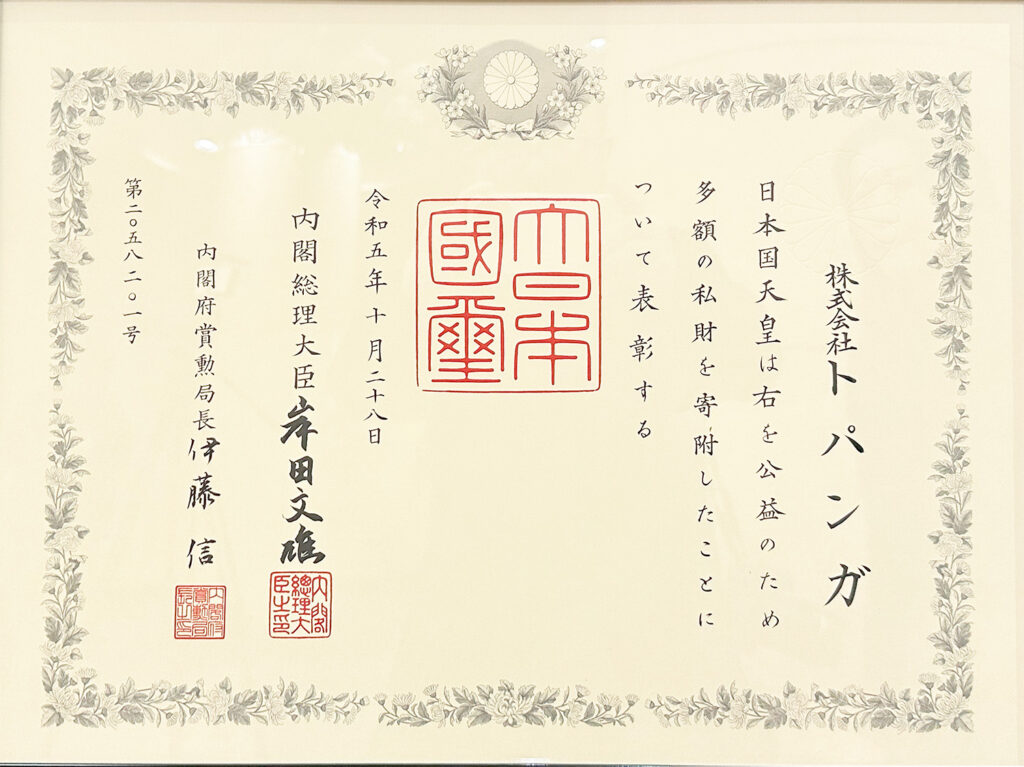 株式会社トパンガ
日本国天皇は右を公益のため
多額の私財を寄附したことに
ついて表彰する
大日本
國璽
令和五年十月二十八日
内閣総理大臣 岸田文雄
内閣総理大臣之印
内閣府賞勲局長 伊藤 信
内閣府賞勲局長之印
第二〇五八二〇一号